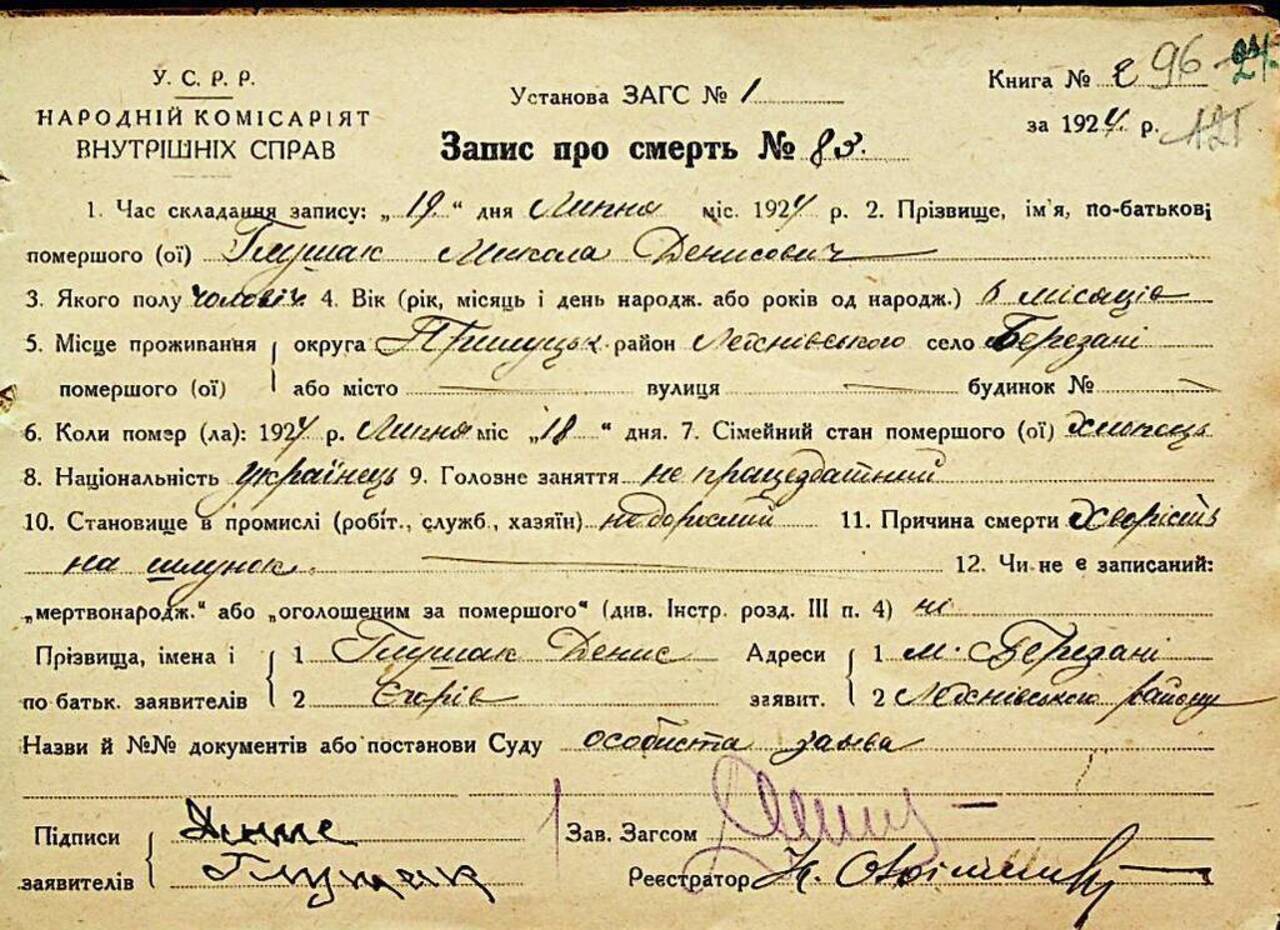 У. С. Р. Р.
НАРОДНІЙ КОМІСАРІЯТ
ВНУТРІШНІХ СПРАВ
Установа ЗАГС № 1
Запис про смерть № 83.
Книга № 2 96
за 1924 р.
1. Час складання запису: „19“ дня Липня міс. 1924 р. 2. Прізвище, ім'я, по-батькові
помершого (ої) Глушак Микола Денисович
3. Якого полу чоловіч 4. Вік (рік, місяць і день народж. або років од народж.) 6 місяців
5. Місце проживання округа Прилуцьк. район село Березані
помершого (ої) або місто — вулиця — будинок № —
6. Коли помер (ла): 1924 р. Липня міс „18“ дня. 7. Сімейний стан помершого (ої) хлопець
8. Національність українець 9. Головне заняття не працездатний
10. Становище в промислі (робіт., служб., хазяїн) недорослий 11. Причина смерти Хворість
на шлунок. 12. Чи не є записаний:
„мертвонародж.“ або „оголошеним за помершого“ (див. Інстр. розд. III п. 4) ні
Прізвища, імена і 1 Глушак Денис Адреси 1 м. Березані
по батьк. заявителів 2 Єгорів заявит. 2 району
Назви й №№ документів або постанови Суду особиста заява
Підписи Зав. Загсом
заявителів Глушак Реєстратор